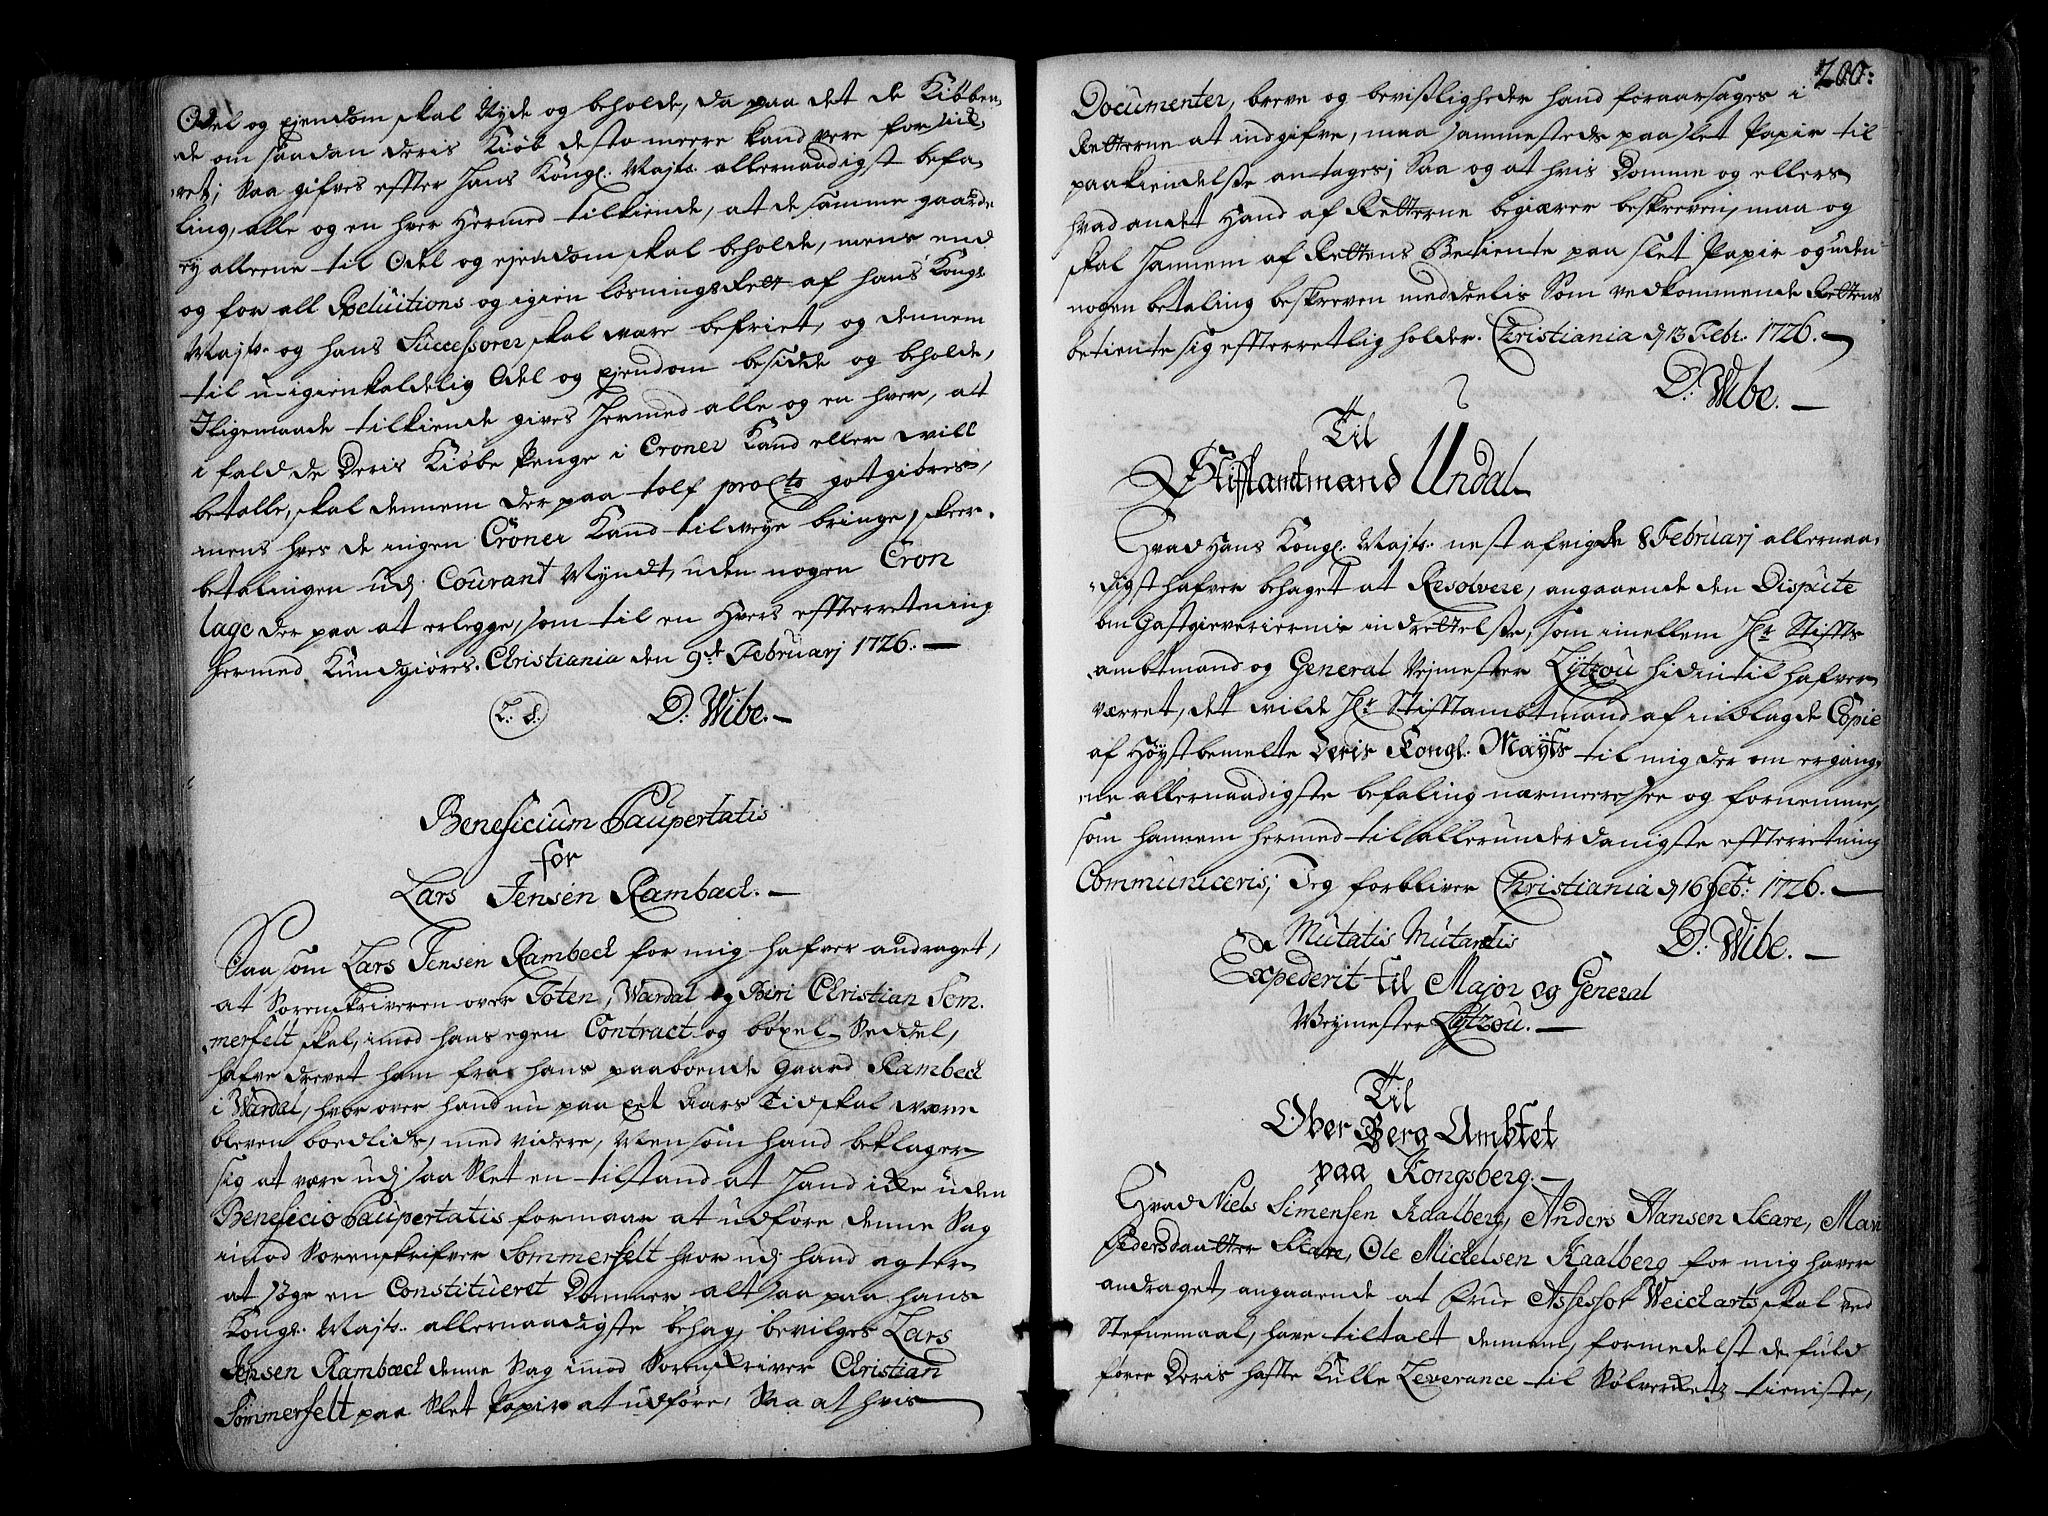 Odel og ejendom skal Nyde og beholde, da paa det de Kiöben,
de om saadan deris Kiöb desto meere kand vere forsik,
ret; Saa gifves effter Hans Kongl: Majts: allernaadigst befa,
ling, alle og en hver hermed tilkiende, at de samme gaarde
ey alleene til Odel og ejendom skal beholde, mens end
og for all Reluitions og igien løsnings Rett af hans Kongl:
Majts: og hans Successorer skal være befriet, og dennem
til uigienkaldelig Odel og ejendom besidde og beholde,
Ligemaade tilkiende gives hermed alle og en hver, at
i fald de Deris Kiöbe Penge i Croner Kand eller vill
betalle, skal dennem der paa tolf proCto gotgiöres,
mens hves de ingen Croner Kand tilveye bringe, skeer
betalningen udj Courant Myndt, uden nogen Cron
lage der paa at erlegge, som til en hvers effterretning
hermed Kundgiöres. Christiania den 9de Februarj 1726. —
L: S: D: Wibe. —
Beneficium Paupertatis
for
Lars Jensen Rambæck. —
Saa som Lars Jensen Rambeck for mig hafver andraget,
at Sorenskriveren over Toten, Wardal og Biri Christian Som,
merfelt skal, imod hans egen Contract og böxel-Seddel,
hafve drevet ham fra hans paaboende Gaard Rambeck
i Wardal, hvor over hand nu paa eet Aars Tid skal være
bleven boedlids, med videre, Men som hand beklager
sig at være udj saa Slet en tilstand at Hand icke uden
Beneficio Paupertatis formaar at udföre denne Sag
imod Sorenskrifver Sommerfelt hvor udj hand agter
at söge en Constitueret Dommer alt saa paa hans
Kongl: Majts: allernaadigste behag, bevilges Lars
Jensen Rambæck denne Sag imod Sorenskriver Christian
Sommerfelt paa Slet Papir at udföre, Saa at hvis
200:
Documenter, breve og bevisligheder hand foraarsages i
Retterne at indgifve, maa sammesteds paa slet Papir til
paakiendelse antages; Saa og at hvis Domme og ellers
hvad andet Hand af Retterne begiærer beskreven, maa og
skal Hannem af Rettens Betiente paa slet Papir og uden
nogen betaling beskreven meddeelis Som vedkommende Rettens
betiente sig effterrettlig holder. Christiania d 13 Febr: 1726. —
D: Wibe. —
Til
Stifftamtmand Undal
Hvad Hans Kongl: Majts: nest afvigte 8 Februarj allernaa,
digst hafver behaget at Resolvere, angaaende den Dispute
om Gastgieveriernis indrettelse, som imellem Hr Stiffts
ambtmand og General Vejmester Lützou hidintil hafver
værret, det wilde Hr Stifftambtmand af indlagde Copie
af Höystbemelte Deris Kongl: Mayts til mig der om ergang,
ne allernaadigste befaling nærmere see og fornemme,
som hannem hermed til allerunderdanigste effterretning
Communiceris; Jeg forbliver Christiania d 16 Feb: 1726. —
D: Wibe. —
Mutatis Mutandis
Expederit til Major og General
Weymester Lützou. —
Til
Ober Berg Ambtet
paa Kongsberg. —
Hvad Niels Simensen Aalberg, Anders Hansen Scare, Mari
Pedersdaatter Scare, Ole Mickelsen Kaalberg for mig haver
andraget, angaaende at Frue Assessor Weicharts skal ved
Stefnemaal, have tiltalt dennem, formedelst de fuld
fører Deris hafte Kulle Leverance til Sölverckets tieniste,